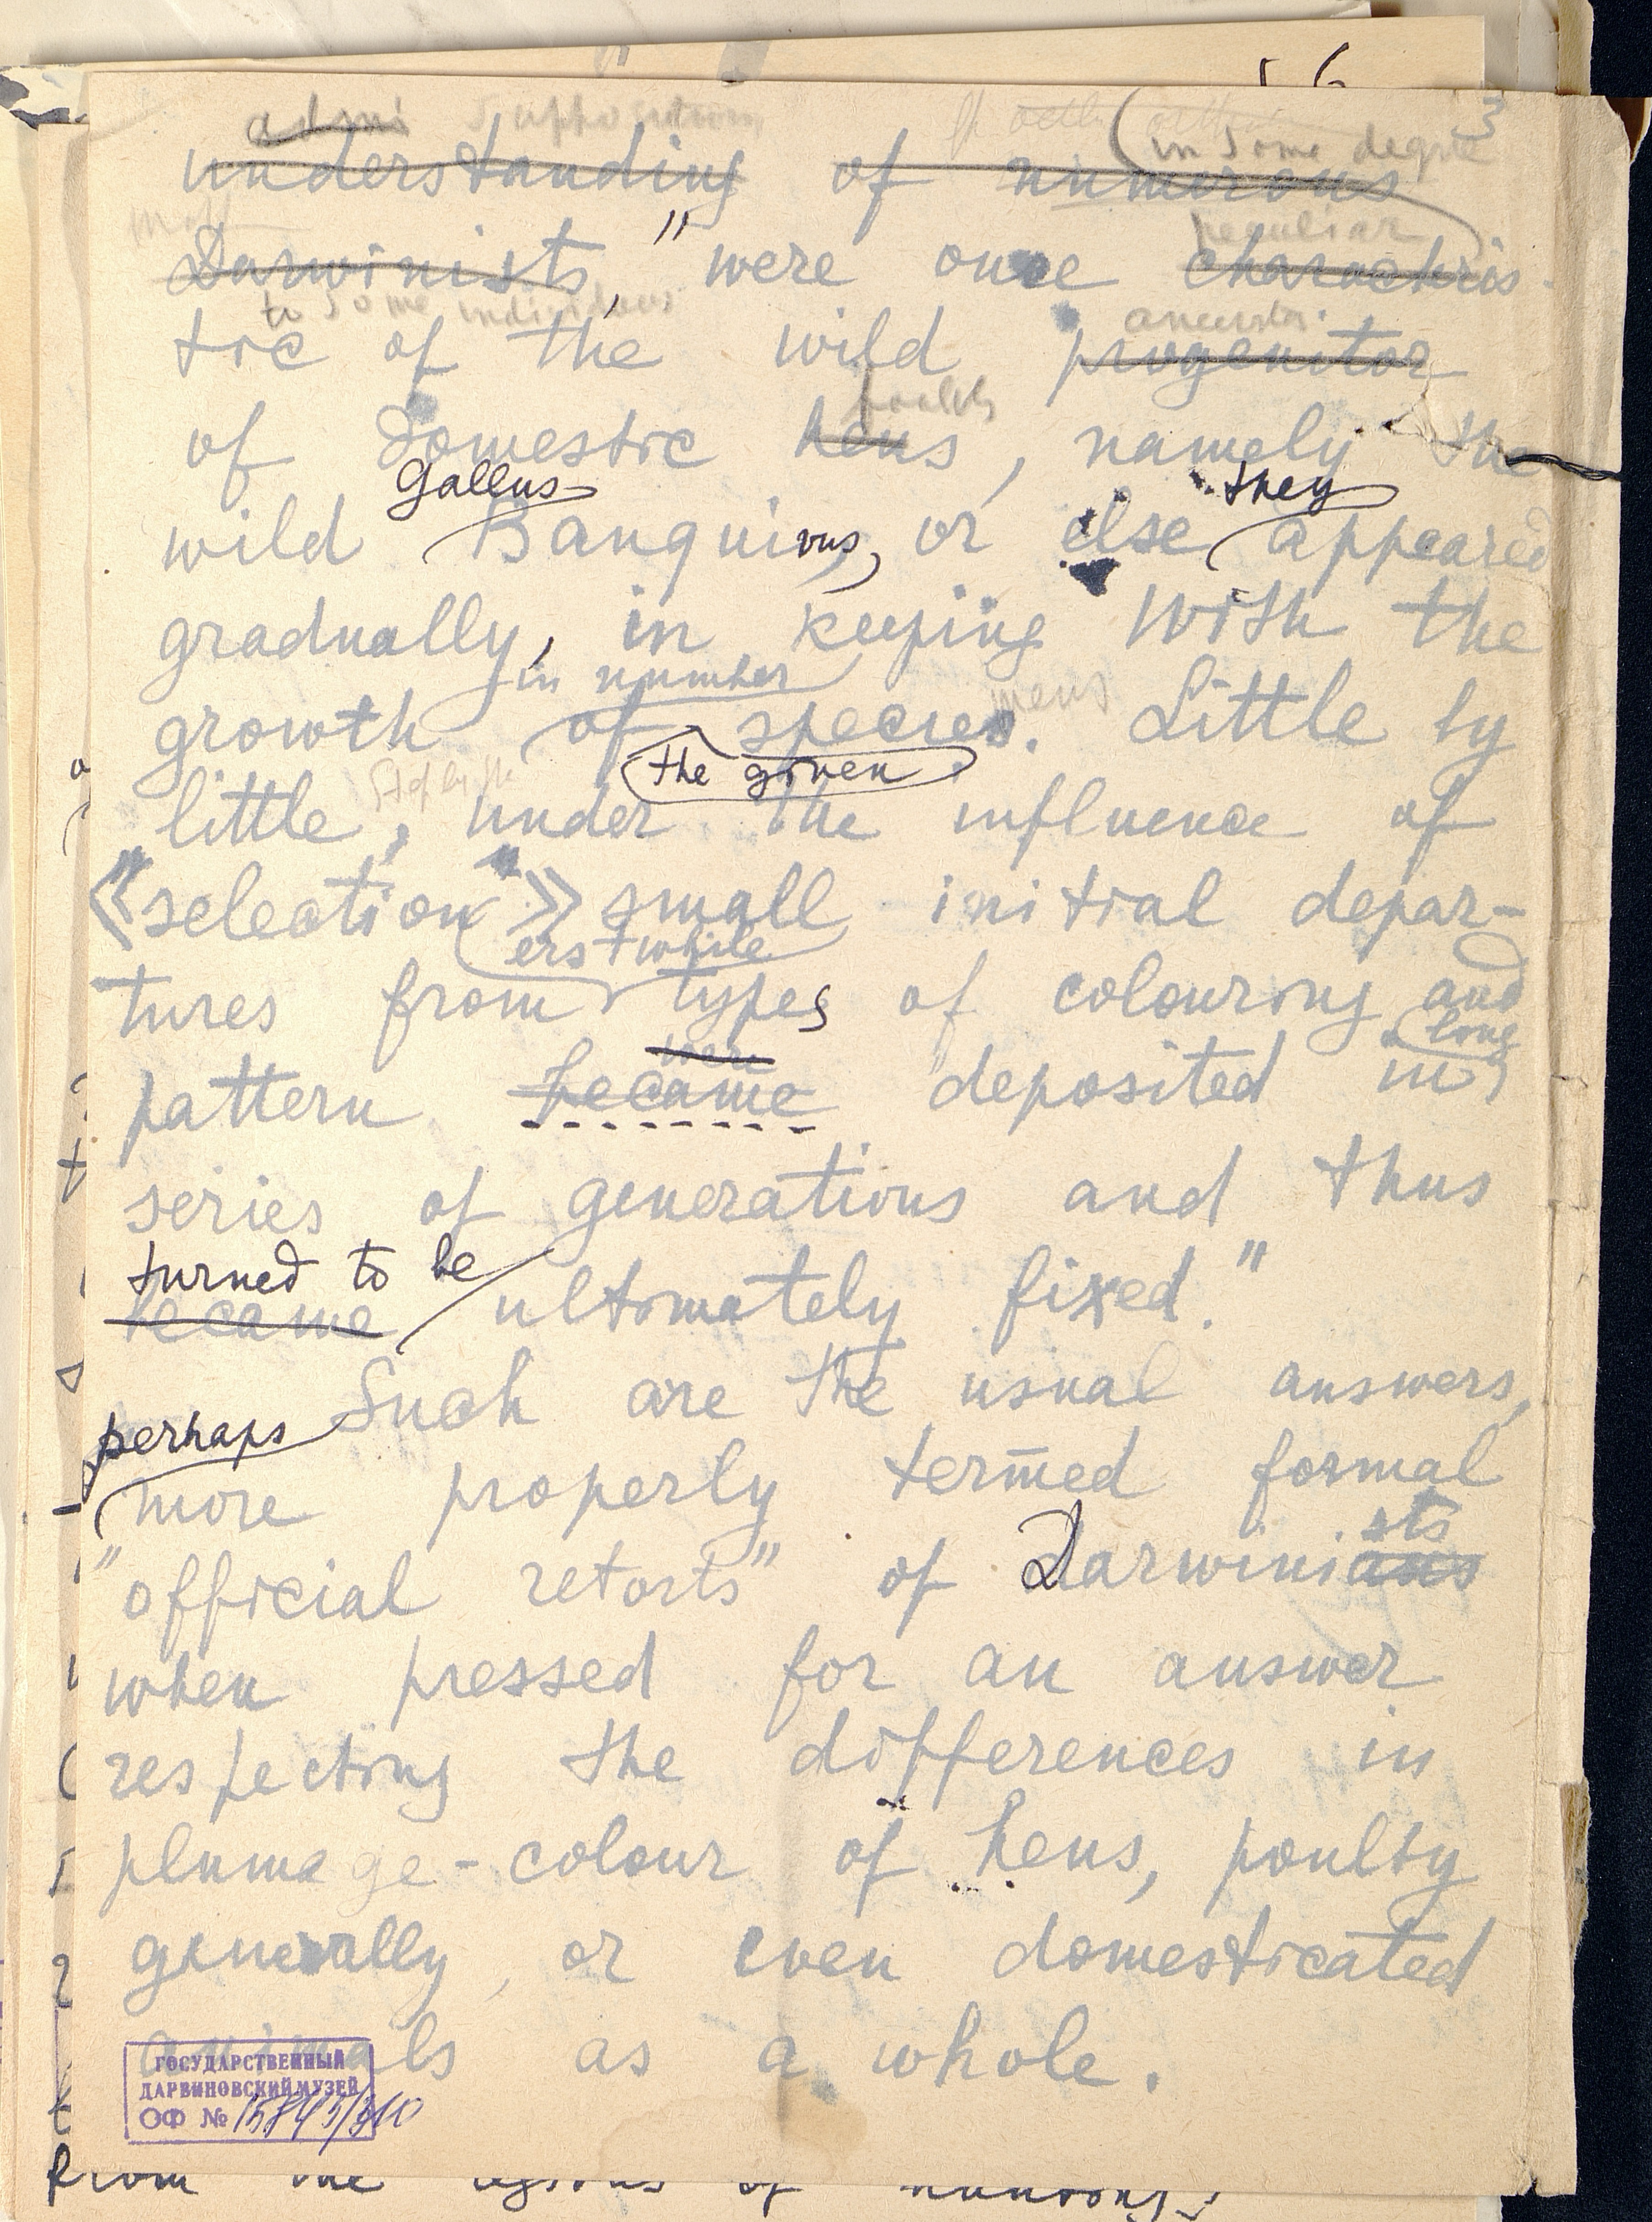 3
in some degree
understanding of numerous
peculiar
Darwinists," were once characteris-
to some individuals
ancestor
tic of the wild progenitor
of domestic hens, namely the
Gallus
they
wild Banquivus, or else appeared
gradually, in keeping with the
in number
growth of species. Little by
the given
little, under the influence of
«"selection"» small initial depar-
erstwhile
tures from types of colouring and
long
were
pattern became deposited in
series of generations and thus
turned to be
became ultimately fixed."
Such are the usual answers,
perhaps
more properly termed formal
sts
"official retorts" of Darwinians
when pressed for an answer
respecting the differences in
plumage-colour of hens, poulty
generally, or even domesticated
animals as a whole.
ГОСУДАРСТВЕННЫЙ
ДАРВИНОВСКИЙ МУЗЕЙ
ОФ №
from the